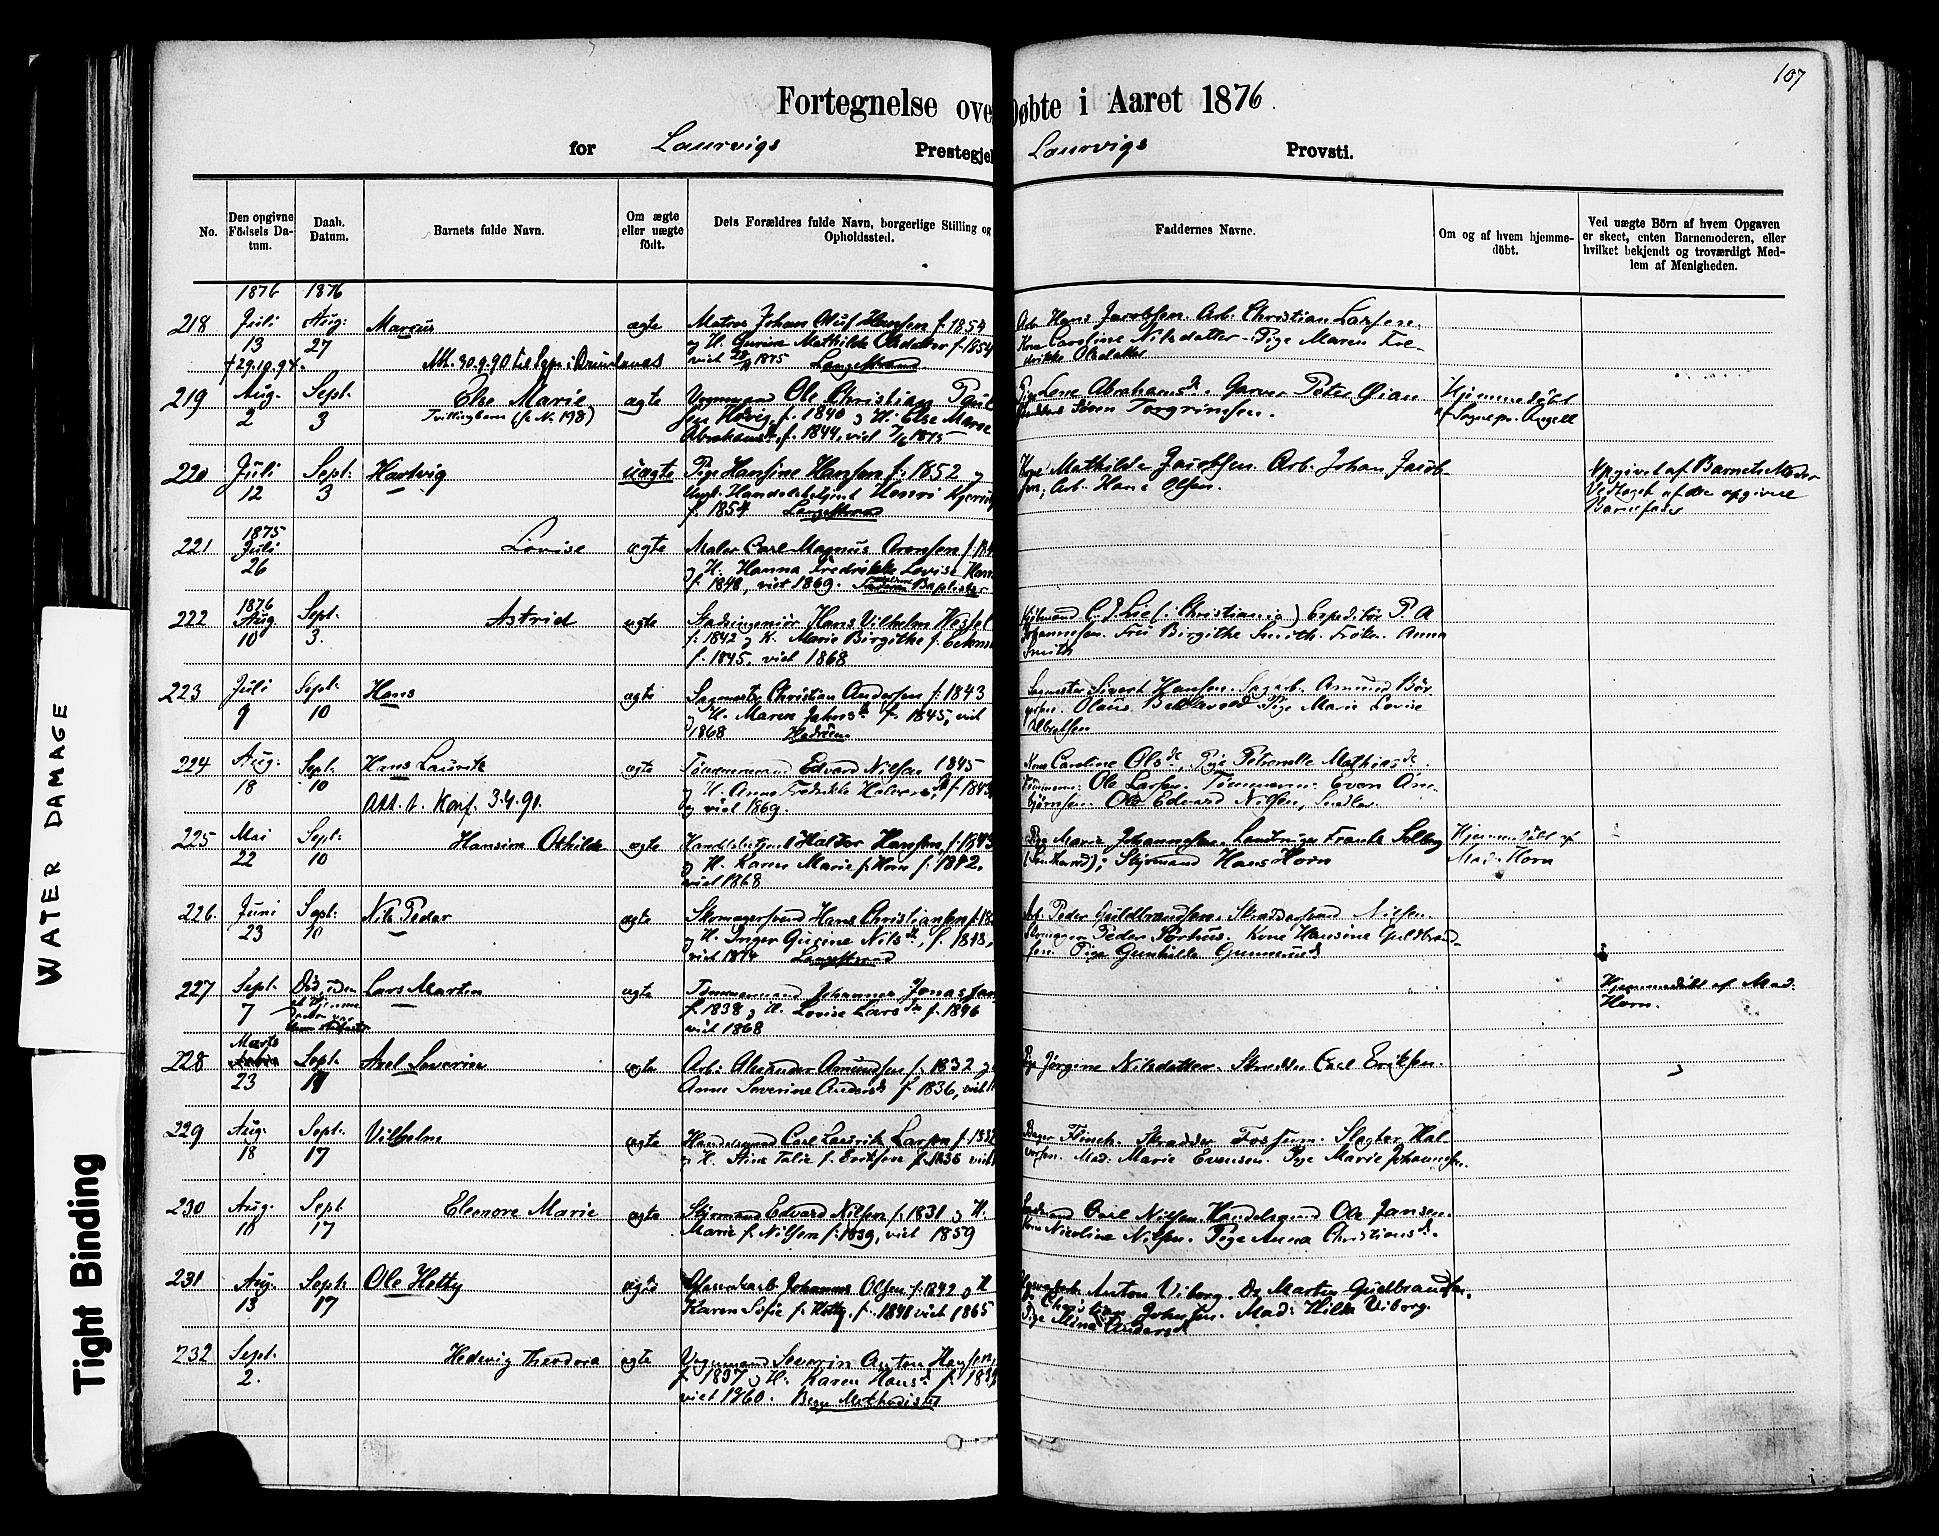 107
Fortegnelse ove Døbte i Aaret 1876.
for Laurvigs Prestegjel Laurvigs Provsti.
No.
Den opgivne Födsels Datum.
Daab. Datum.
Barnets fulde Navn.
Om ægte eller uægte födt.
Dets Forældres fulde Navn, borgerlige Stilling og Opholdssted.
Faddernes Navne.
Om og af hvem hjemmedöbt.
Ved uægte Börn af hvem Opgaven er skeet, enten Barnemoderen, eller hvilket bekjendt og troværdigt Medlem af Menigheden.
1876 1876
218 Juli Aug: Marcus ægte Matros Johan Oluf Hansen f. 1854 Arb. Hans Jacobsen. Arb. Christian Larsen.
13 27 og H. Gurine Mathilde Olsdatter f. 1854 Kone Caroline Nilsdatter - Pige Maren Fre-
† 29.10.94. Att. 30.9.90 viet 1875 Langestrand drikke Olsdatter
219 Aug. Sept. Else Marie ægte Vognmand Ole Christian Poul Lene Abrahamsd. Garver Peter Øian Hjemmedöbt
2 3 Tvillingbarn (se No. 198) sen Hovig f. 1840 og H. Else Marie Søren Torgrimsen. af Sognepr. Angell
Abrahamsd. f. 1844, viet 7/6 1875
220 Juli Sept: Hartvig uægte Pige Hansine Hansen f. 1852 og Kone Mathilde Jacobsen. Arb. Johan Jacob- Opgivet af Barnets Moder
12 3 Ungk. Handelsbetjent Henri sen, Arb. Hans Olsen. Vedtaget af den opgivne
f. 1854 Langestrand Barnefader
1875
221 Juli Lovise ægte Maler Carl Magnus Arensen
26 og H. Hanna Fredrikke Lovise
f. 1848, viet 1869. Baptister
1876
222 Aug Sept. Astrid ægte Stadsingeniør Hans Vilhelm Wessel Kjøbmand C. J. Lie (i Christiania) Expeditør P A
10 3. f. 1842 og H. Marie Birgithe f. Johannsen. Fru Birgithe Smith. Frøken Anna
f. 1845. viet 1868 Smith
223 Juli Sept: Hans ægte Sagmester Christian Andersen f. 1843 Sagmester Sivert Hansen. Sagarb. Amund Bør-
9 10 og H. Maren Jahnsd. f. 1845, viet gesen. Olaus Pige Marie Lovise
1868 Hedrum Albretsen
224 Aug. Sept. Hans Laurits ægte Tømmermand Edvard Nilsen 1845 Kone Caroline Olsd., Pige Petronelle Mathiasd.
18 10 og H. Anne Fredrikke Halvorsd. f. 1843 Tømmerm: Ole Larsen. Tømmerm: Even Arn-
Att. t. Konf. 3.4.91. og viet 1869. bjørnsen. Ole Edvard Nilsen, Snedker
225 Mai Sept: Hansine Othilde ægte Handelsbetjent Halvor Hansen f. 1843 Pige Marie Johannesen. Frants Solberg Hjemmedöbt af
22 10 og H. Karen Marie f. Horn f. 1842. Styrmand Hans Horn Mad. Horn
viet 1868
226. Juni Sept: Nils Peder ægte Skomagersvend Hans Christiansen Arb. Peder Guldbrandsen. Skræddersvend Nilsen.
23 10 og H. Inger Gurine Nilsd., f. 1848, Skomager Peder Sørhus. Kone Hansine Guldbrand-
viet 1874 Langestrand sen. Pige Gunhilde Gunmunds
227 Sept. Død, uden Lars Martin ægte Tømmermand Johannes Jonassen Hjemmedöbt af Mad.
7 f. 1838 og H. Lovise Larsdtr f. 1846 Horn.
viet 1868
Marts
228 Sept. Axel Severin ægte Arb: Alexander Amundsen f. 1832 og Pige Jørgine Nilsdatter. Skrædder Carl Eriksen.
23 Anne Severine Andersd. f. 1836, viet
229 Aug. Sept. Vilhelm ægte Handelsmand Carl Laurits Larsen f. 1832 Bager Flinch. Skrædder Fossum. Slagter Hal-
18 17 og H. Stine Talie f. Eriksen f. 1836 viet vorsen. Mad: Marie Evensen. Pige Marie Johannesen.
230 Aug. Sept Eleonore Marie ægte Styrmand Edvard Nilsen f. 1831 og H. Carl Nilsen. Handelsmand Ole Jansen.
10 17 Marie f. Nilsen f. 1839, viet 1859 Kone Nicoline Nilsen. Pige Anna Christiansd.
231 Aug. Sept: Ole Hetty ægte Johannes Olsen f. 1842 og H Anton Viborg. Do Martin Guldbrandsen.
13 17 Karen Sofie f. Hetty. f. 1841 viet 1865 Christian Johnsen. Mad: Hilda Viborg.
Pige Mina Andersd.
232 Sept. Hedevig Theodora ægte Vognmand Severin Anton Hansen
2. f. 1837 og H. Karen Hansd. f. 183
viet 1860. Begge Methodister
WATER DAMAGE
Tight Binding